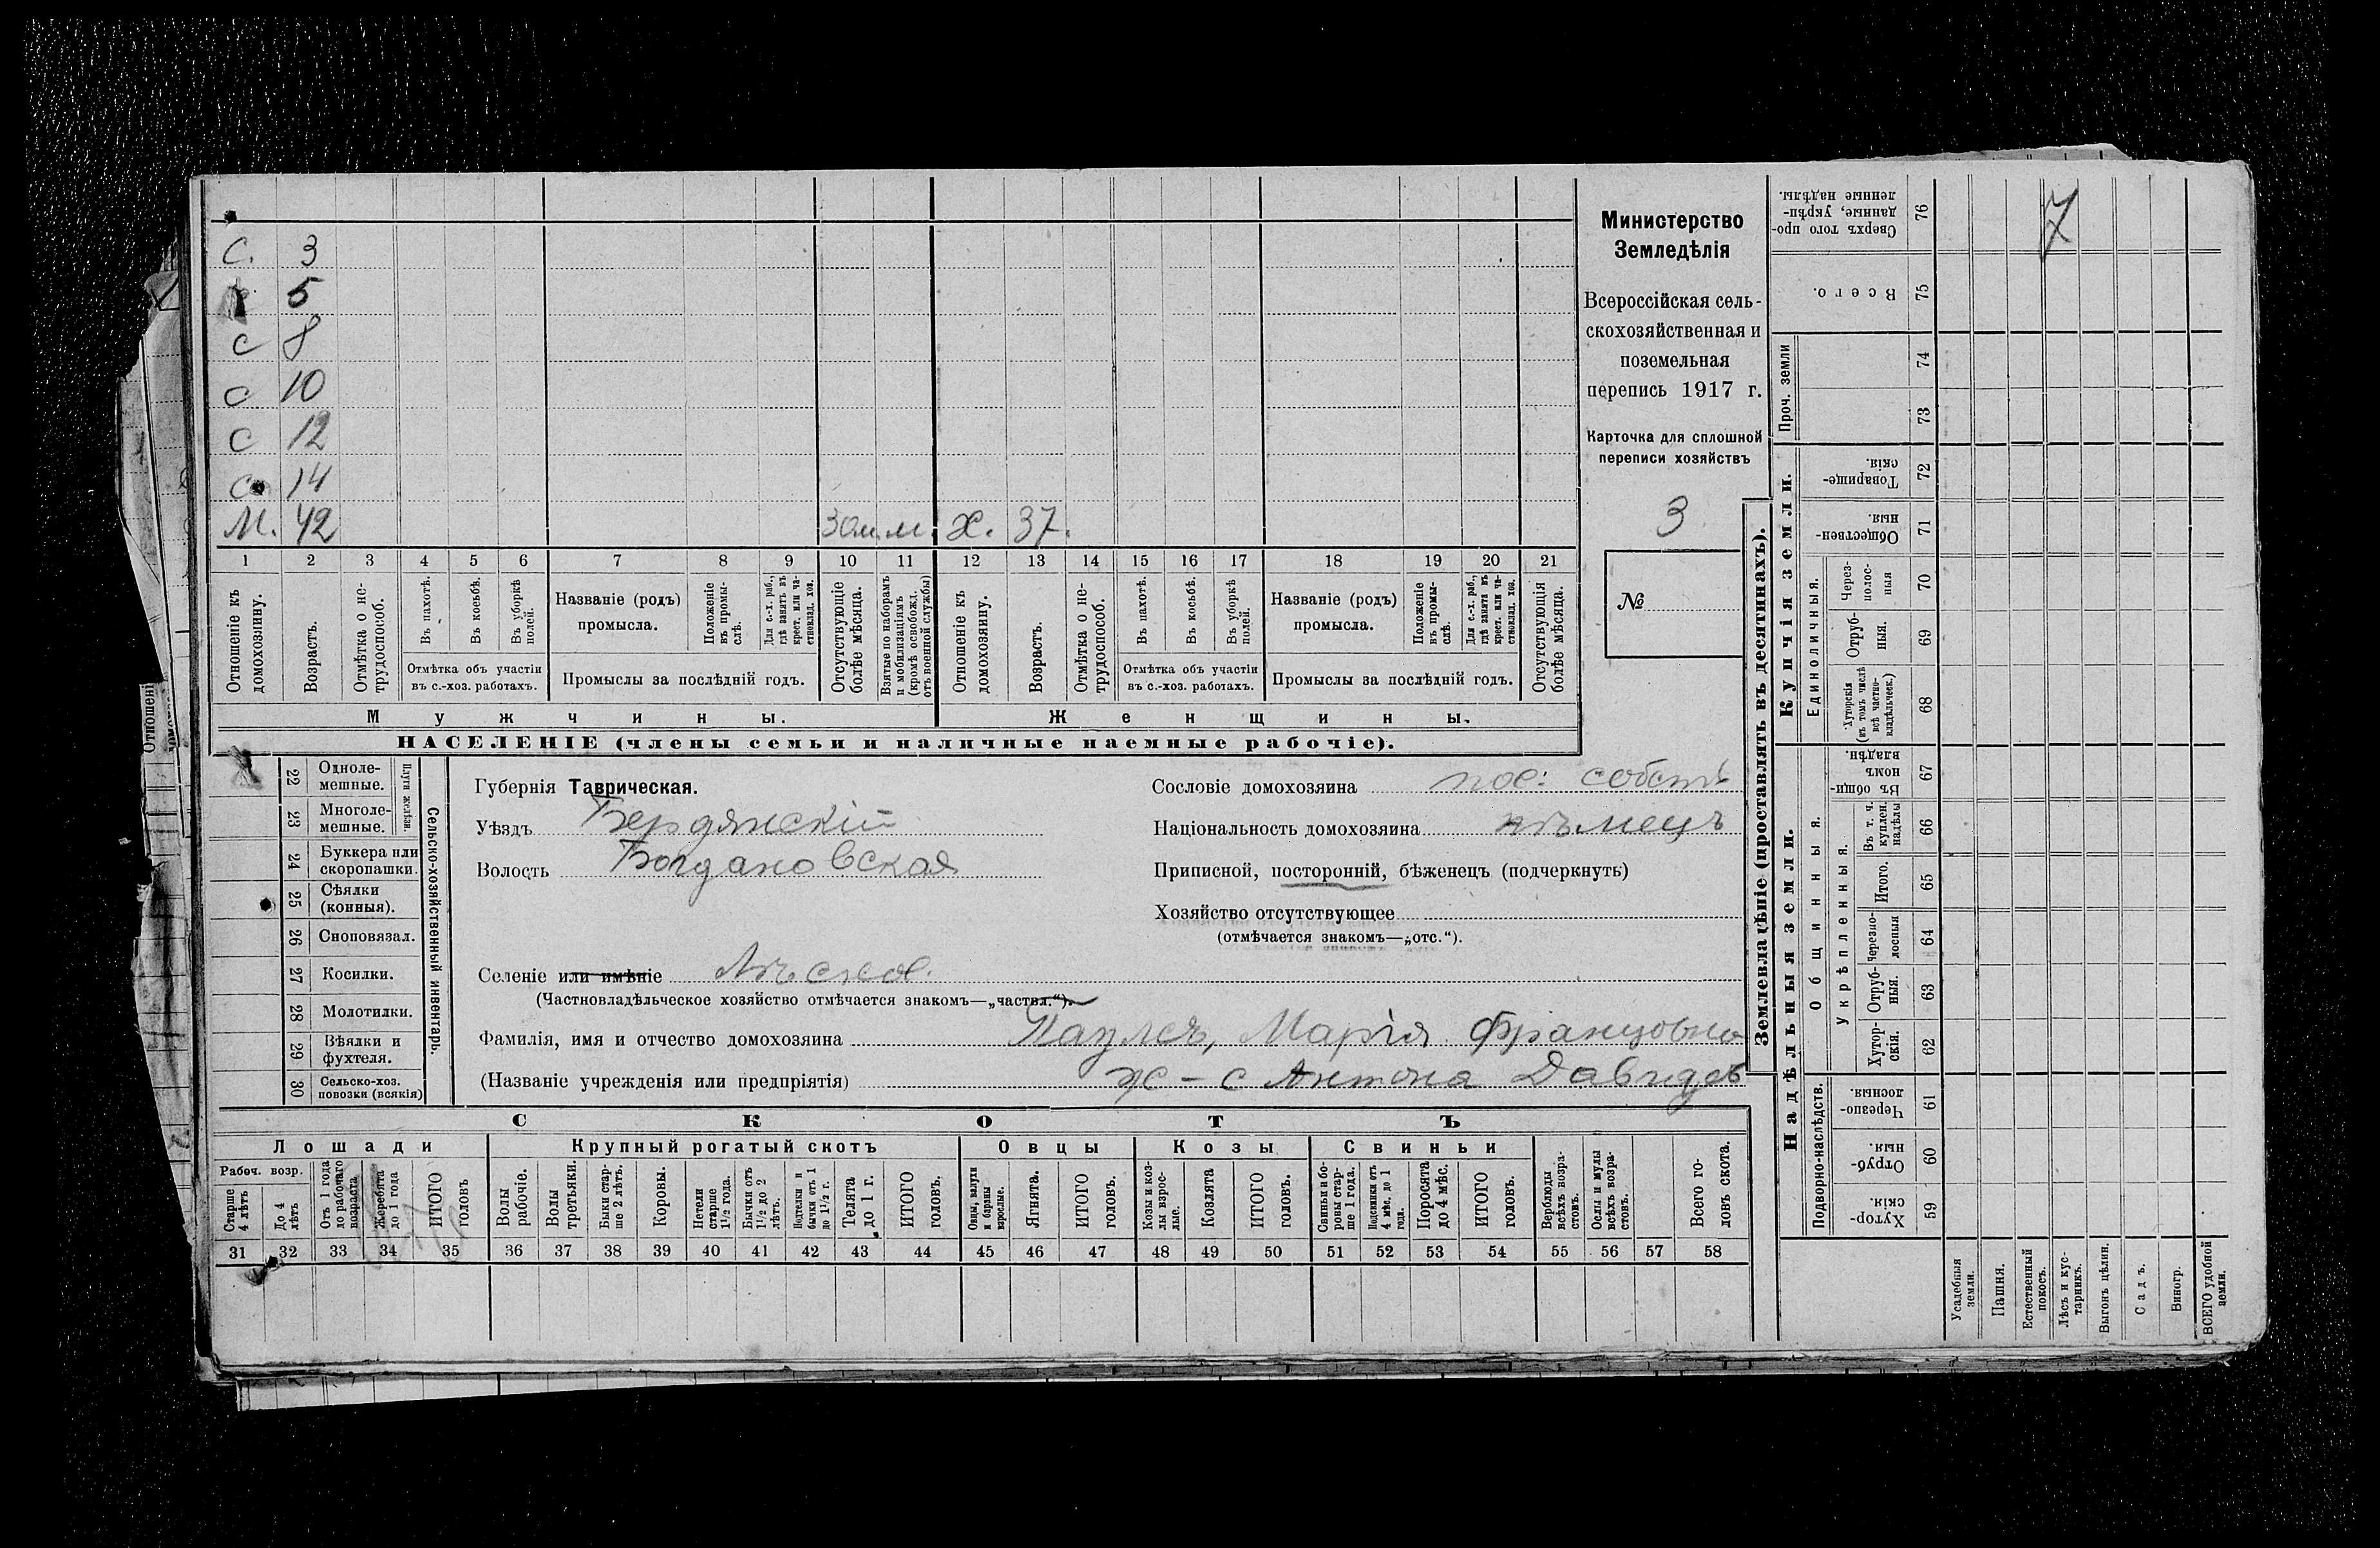 С. 3
5
с 8
с 10
с 12
с 14
М. 42 30 м. м. Ж. 37.
1 2 3 4 5 6 7 8 9 10 11 12 13 14 15 16 17 18 19 20 21
Отношеніе къ домохозяину.
Возрастъ.
Отмѣтка о не-трудоспособ.
Въ пахотѣ.
Въ косьбѣ.
Въ уборкѣ полей.
Отмѣтка объ участіи
въ с.-хоз. работахъ.
Названіе (родъ)
промысла.
Положеніе въ промы-слѣ.
Для с.-х. раб., гдѣ занятъ въ крест. или ча-стновлад. хоз.
Промыслы за послѣдній годъ.
Отсутствующіе болѣе мѣсяца.
Взятые по наборамъ и мобилизаціямъ (кромѣ освобожд. отъ военной службы)
Отношеніе къ домохозяину.
Возрастъ.
Отмѣтка о не-трудоспособ.
Въ пахотѣ.
Въ косьбѣ.
Въ уборкѣ полей.
Отмѣтка объ участіи
въ с.-хоз. работахъ.
Названіе (родъ)
промысла.
Положеніе въ промы-слѣ.
Для с.-х. раб., гдѣ занята въ крест. или ча-стновлад. хоз.
Промыслы за послѣдній годъ.
Отсутствующія болѣе мѣсяца.
Мужчины. Женщины.
НАСЕЛЕНІЕ (члены семьи и наличные наемные рабочіе).
Министерство
Земледѣлія
Всероссійская сель-
скохозяйственная и
поземельная
перепись 1917 г.
Карточка для сплошной
переписи хозяйствъ
3
№
22 Одноле-мешные.
23 Многоле-мешные.
Плуги желѣзн.
24 Буккера или скоропашки.
25 Сѣялки (конныя).
26 Сноповязал.
27 Косилки.
28 Молотилки.
29 Вѣялки и фухтеля.
30 Сельско-хоз. повозки (всякія)
Сельско-хозяйственный инвентарь.
Губернія Таврическая.
Уѣздъ Бердянскій
Волость Богдановская
Сословіе домохозяина пос: собств
Національность домохозяина нѣмецъ
Приписной, посторонній, бѣженецъ (подчеркнуть)
Хозяйство отсутствующее
(отмѣчается знакомъ—„отс.“).
Селеніе или имѣніе
(Частновладѣльческое хозяйство отмѣчается знакомъ—„частвл.“).
Фамилія, имя и отчество домохозяина Паулсъ, Марія Францовна
(Названіе учрежденія или предпріятія) ж-с Антона Давидов
СКОТЪ
Лошади Крупный рогатый скотъ Овцы Козы Свиньи
Рабоч. возр.
Старше 4 лѣтъ
До 4 лѣтъ
Отъ 1 года до рабочаго возраста
Жеребята до 1 года
ИТОГО головъ
Волы рабочіе.
Волы третьяки.
Быки стар-ше 2 лѣтъ.
Коровы.
Нетели старше 1½ года.
Бычки отъ 1½ до 2 лѣтъ.
Подтелки и бычки отъ 1 до 1½ г.
Телята до 1 г.
ИТОГО головъ.
Овцы, валухи и бараны взрослые.
Ягнята.
ИТОГО головъ.
Козы и коз-лы взрос-лые.
Козлята
ИТОГО головъ.
Свиньи и бо-ровы стар-ше 1 года.
Подсвинки отъ 4 мѣс. до 1 года.
Поросята до 4 мѣс.
ИТОГО головъ.
Верблюды всѣхъ возра-стовъ.
Ослы и мулы всѣхъ возра-стовъ.
Всего го-ловъ скота.
31 32 33 34 35 36 37 38 39 40 41 42 43 44 45 46 47 48 49 50 51 52 53 54 55 56 57 58
Землевладѣніе (проставлять въ десятинахъ).
Купчія земли.
Надѣльныя земли.
7
Сверхъ того про-данные, укрѣп-ленные надѣлы. 76
Всего. 75
Проч. земли
74
73
Товарище-скія. 72
Обществен-ныя. 71
Единоличныя.
Через-полос-ныя 70
Отруб-ныя. 69
Хуторскія (въ томъ числѣ всѣ частно-владѣльческ.) 68
Общинныя.
Въ общи-номъ владѣн. 67
Укрѣпленныя.
Въ т. ч. куплен. надѣлы 66
Итого. 65
Черезпо-лосныя 64
Отруб-ныя. 63
Хутор-скія. 62
Подворно-наслѣдств.
Черезпо-лосныя. 61
Отруб-ныя. 60
Хутор-скія. 59
Усадебныя земли.
Пашня.
Естественный покосъ.
Лѣсъ и кус-тарникъ.
Выгонъ цѣлин.
Садъ.
Виногр.
ВСЕГО удобной земли.
Отношені